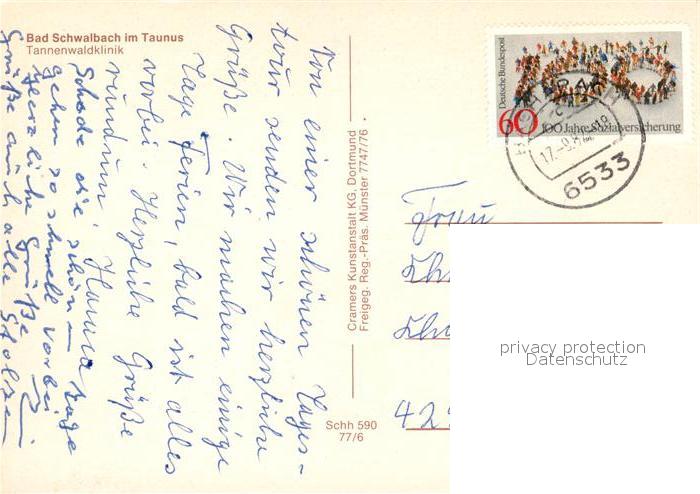 Bad Schwalbach im Taunus
Tannenwaldklinik
Von einer schönen Tages-
tour senden wir herzliche
Grüße. Wir machen einige
Tage Ferien, bald ist alles
vorbei. Herzliche Grüße
rundum. Hanna
Schade die schönen Tage
gehn so schnell vorbei
Herzliche Grüße
Grüße auch alle
Cramers Kunstanstalt KG, Dortmund
Freigeg. Reg.-Präs. Münster 7747/76
Schh 590
77/6
Deutsche Bundespost
60 100 Jahre Sozialversicherung
17.-9.
6533
Frau
422
privacy protection
Datenschutz